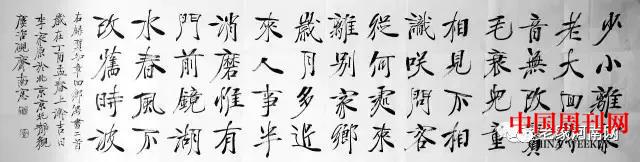 少小離家
老大回
音無改鬢
毛衰兒童
相見不相
識咲問客
從何處來
離別家鄉
歲月多近
來人事半
消磨惟有
門前鏡湖
水春風不
改舊時波
右錄賀知章回鄉偶書二首
歲在丁酉孟春上澣吉日
於北京京北靜觀
南窓
中国周刊网